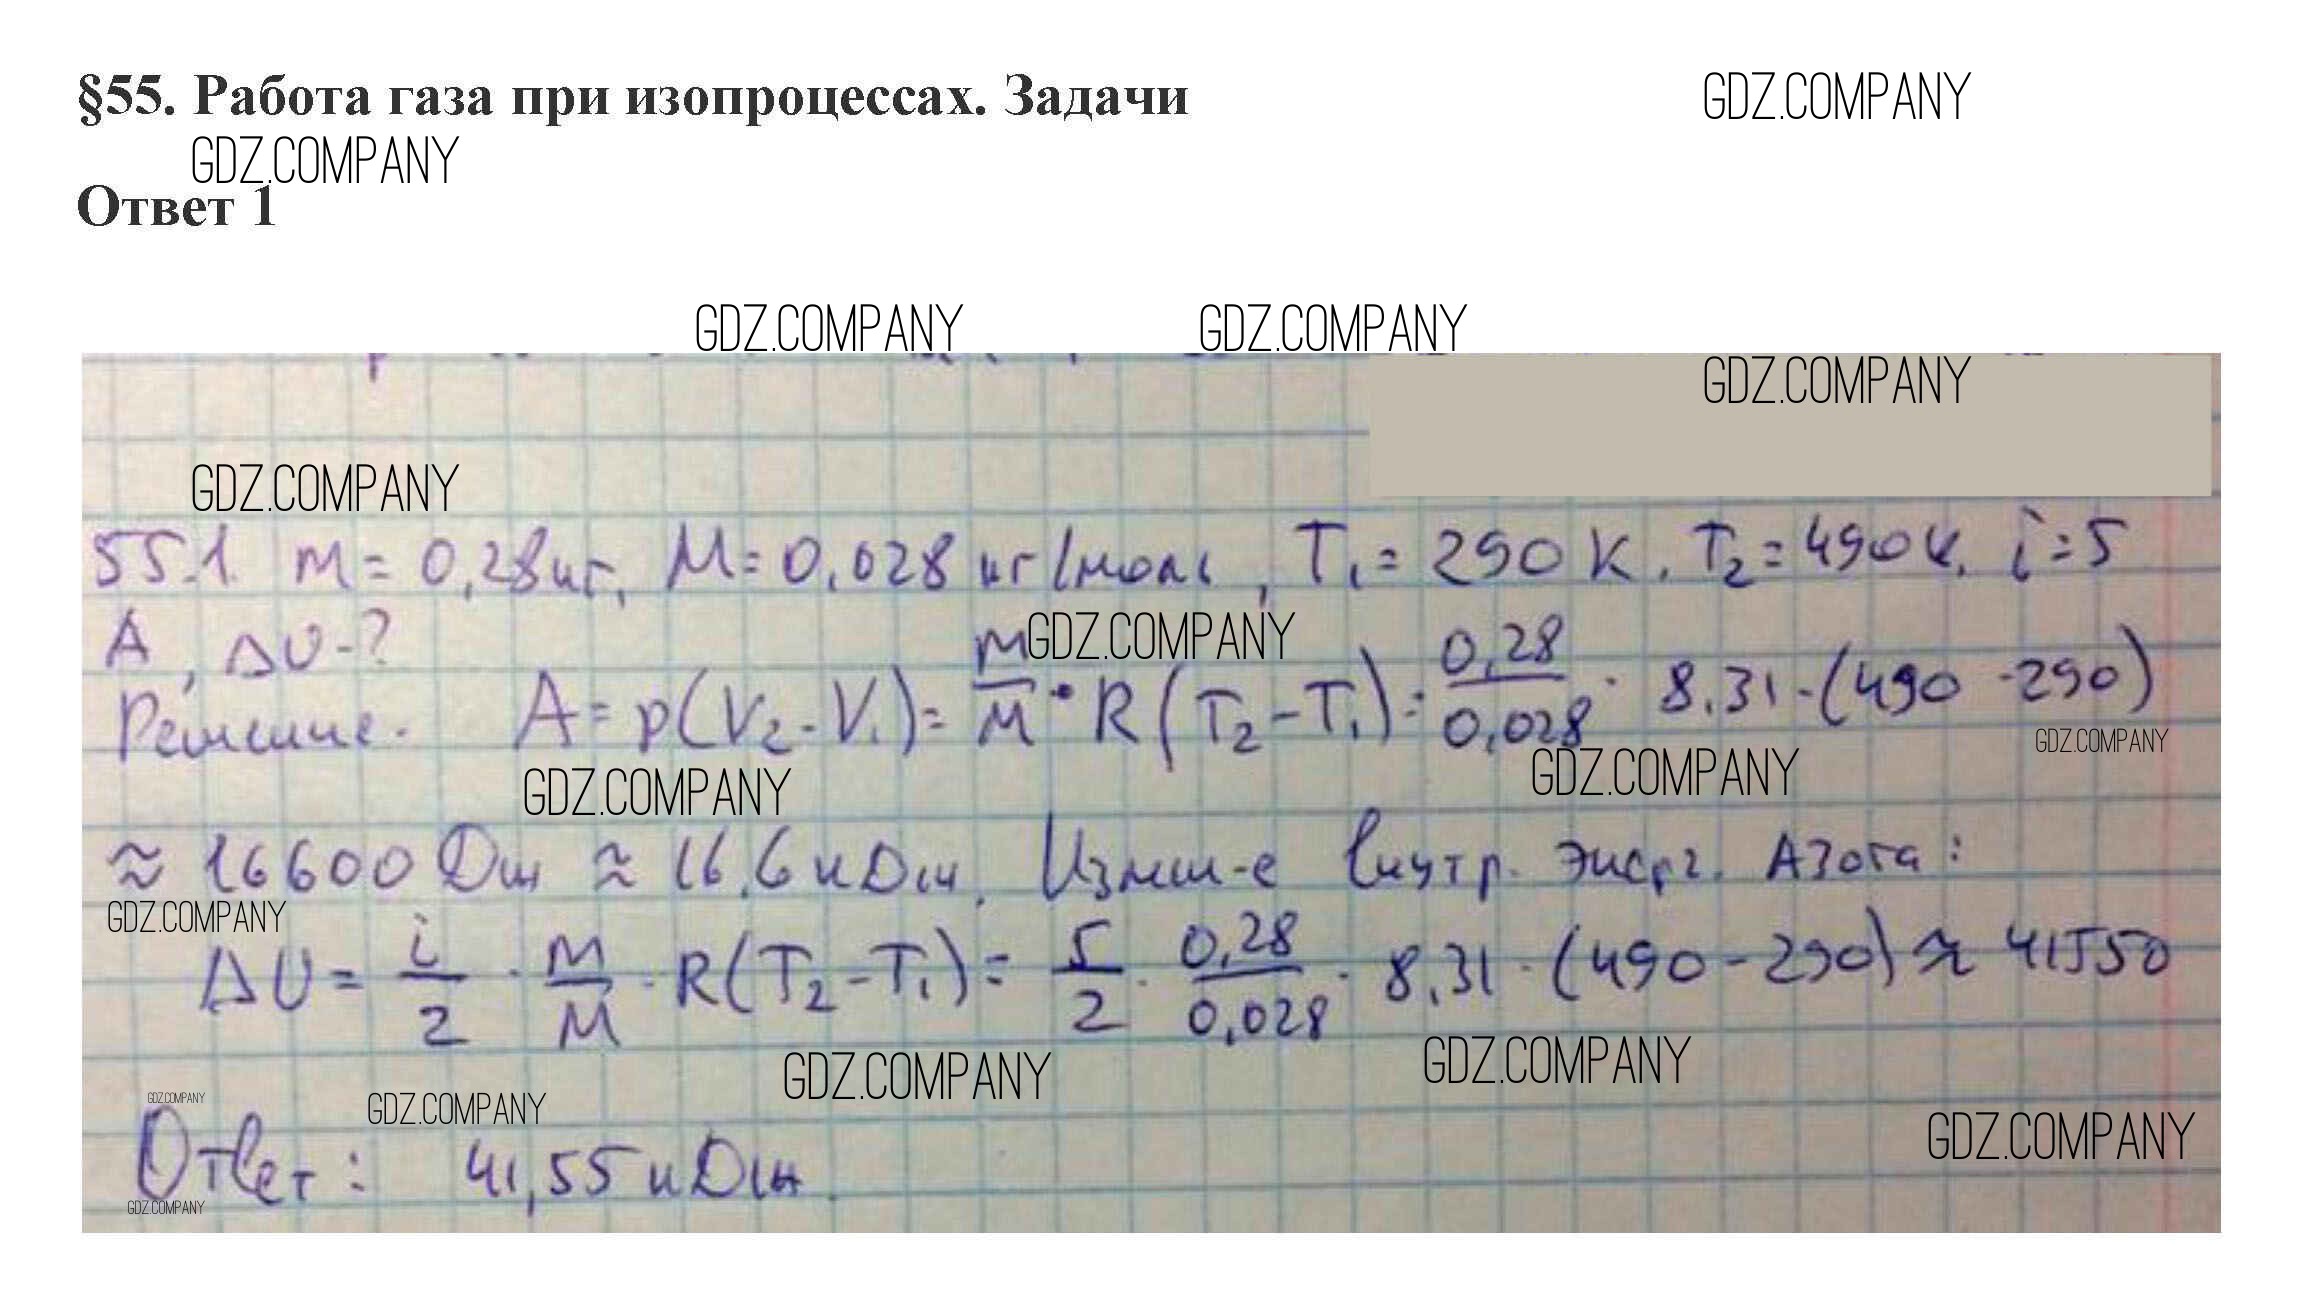 §55. Работа газа при изопроцессах. Задачи
GDZ.COMPANY
GDZ.COMPANY
Ответ 1
GDZ.COMPANY GDZ.COMPANY
GDZ.COMPANY
GDZ.COMPANY
55.1. m = 0,28 кг, M = 0,028 кг/моль, T₁ = 290 К, T₂ = 490 К, i = 5
A, ΔU - ?
GDZ.COMPANY
Решение. A = p(V₂ - V₁) = m/M · R (T₂ - T₁) = 0,28/0,028 · 8,31 · (490 - 290)
GDZ.COMPANY
GDZ.COMPANY GDZ.COMPANY
≈ 16600 Дж ≈ 16,6 кДж. Измен-е внутр. энерг. Азота:
GDZ.COMPANY
ΔU = i/2 · m/M · R(T₂ - T₁) = 5/2 · 0,28/0,028 · 8,31 · (490 - 290) ≈ 41550
GDZ.COMPANY GDZ.COMPANY
GDZ.COMPANY GDZ.COMPANY
GDZ.COMPANY
Ответ: 41,55 кДж
GDZ.COMPANY